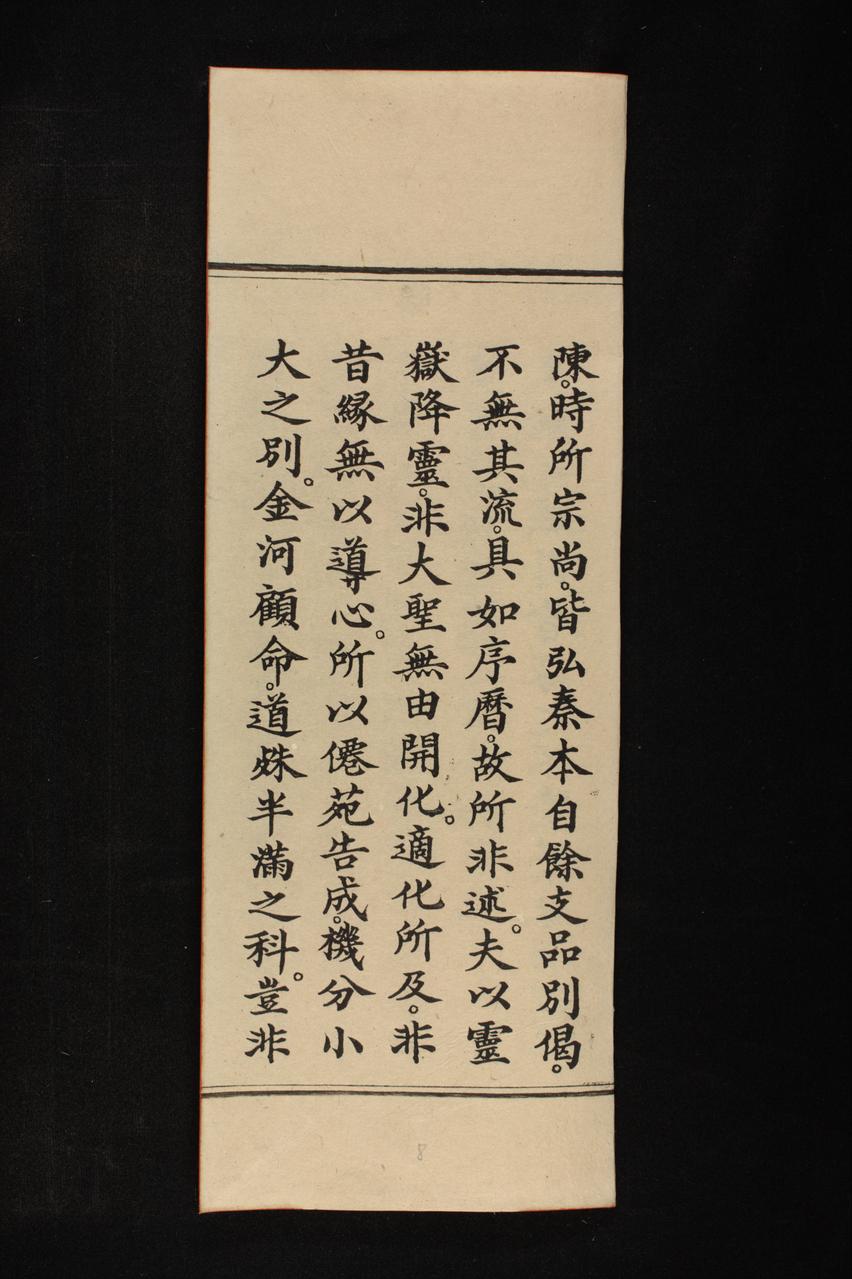 陳。時所宗尚。皆弘秦本自餘支品別偈。
不無其流。具如序曆。故所非述。夫以靈
嶽降靈。非大聖無由開化。適化所及。非
昔緣無以導心。所以僊苑告成。機分小
大之別。金河顧命。道姝半滿之科。豈非
8